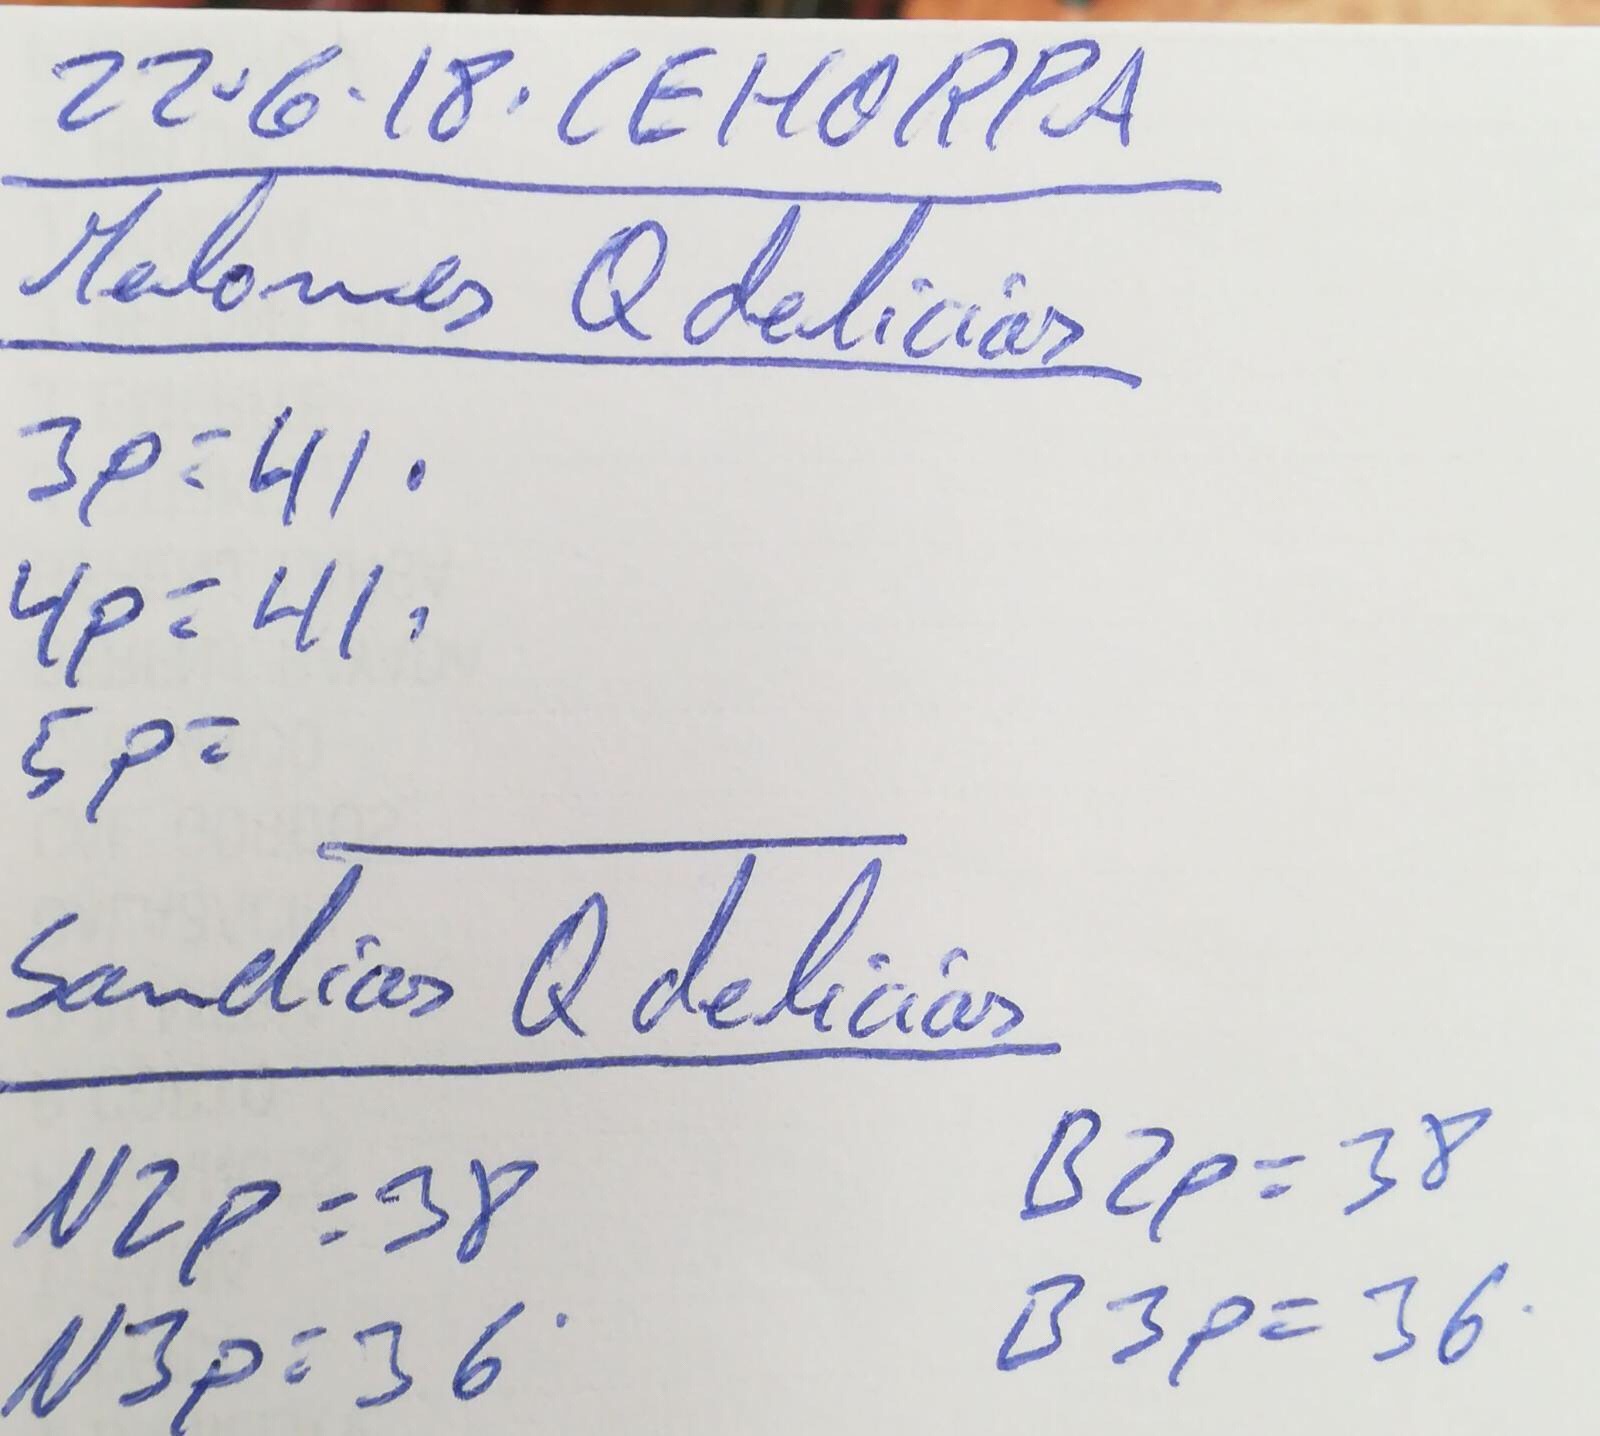 22·6·18· CEHORPA
Melones Q delicias
3p=41.
4p=41.
5p=
Sandias Q delicias
N2p=38 B2p=38
N3p=36· B3p=36·